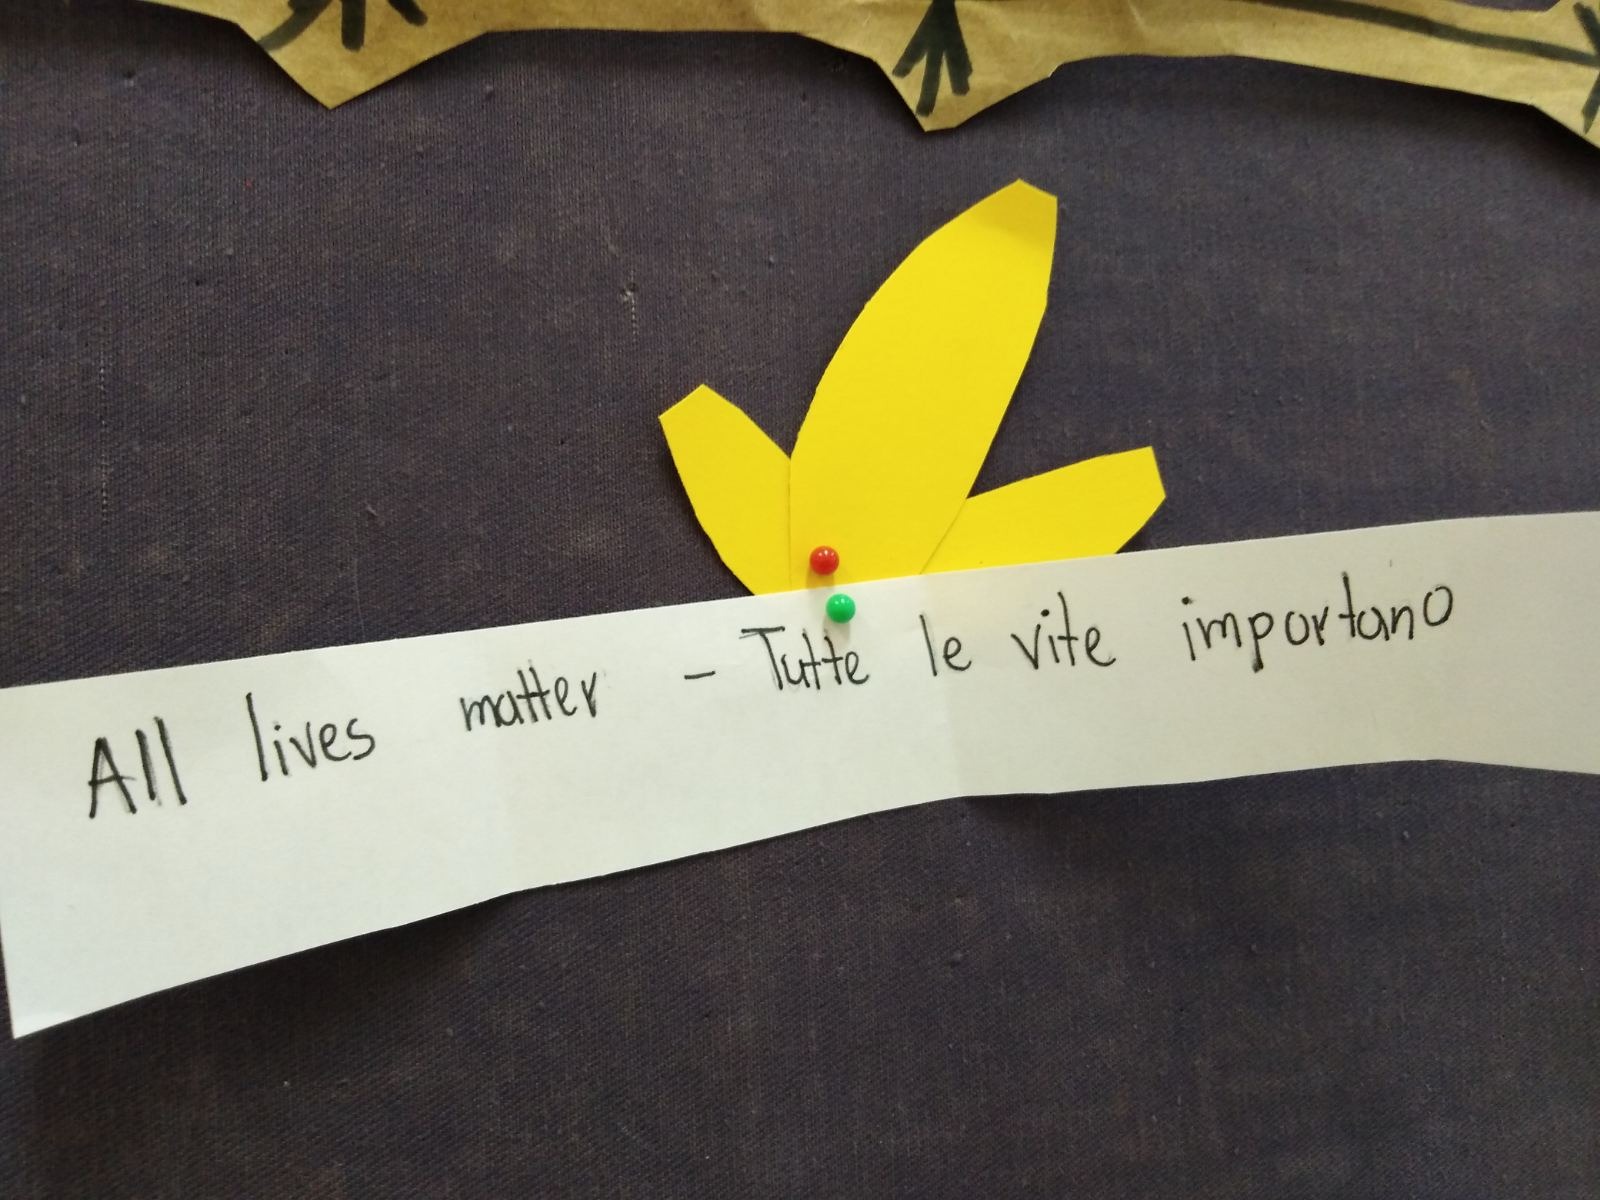 All lives matter - Tutte le vite importano